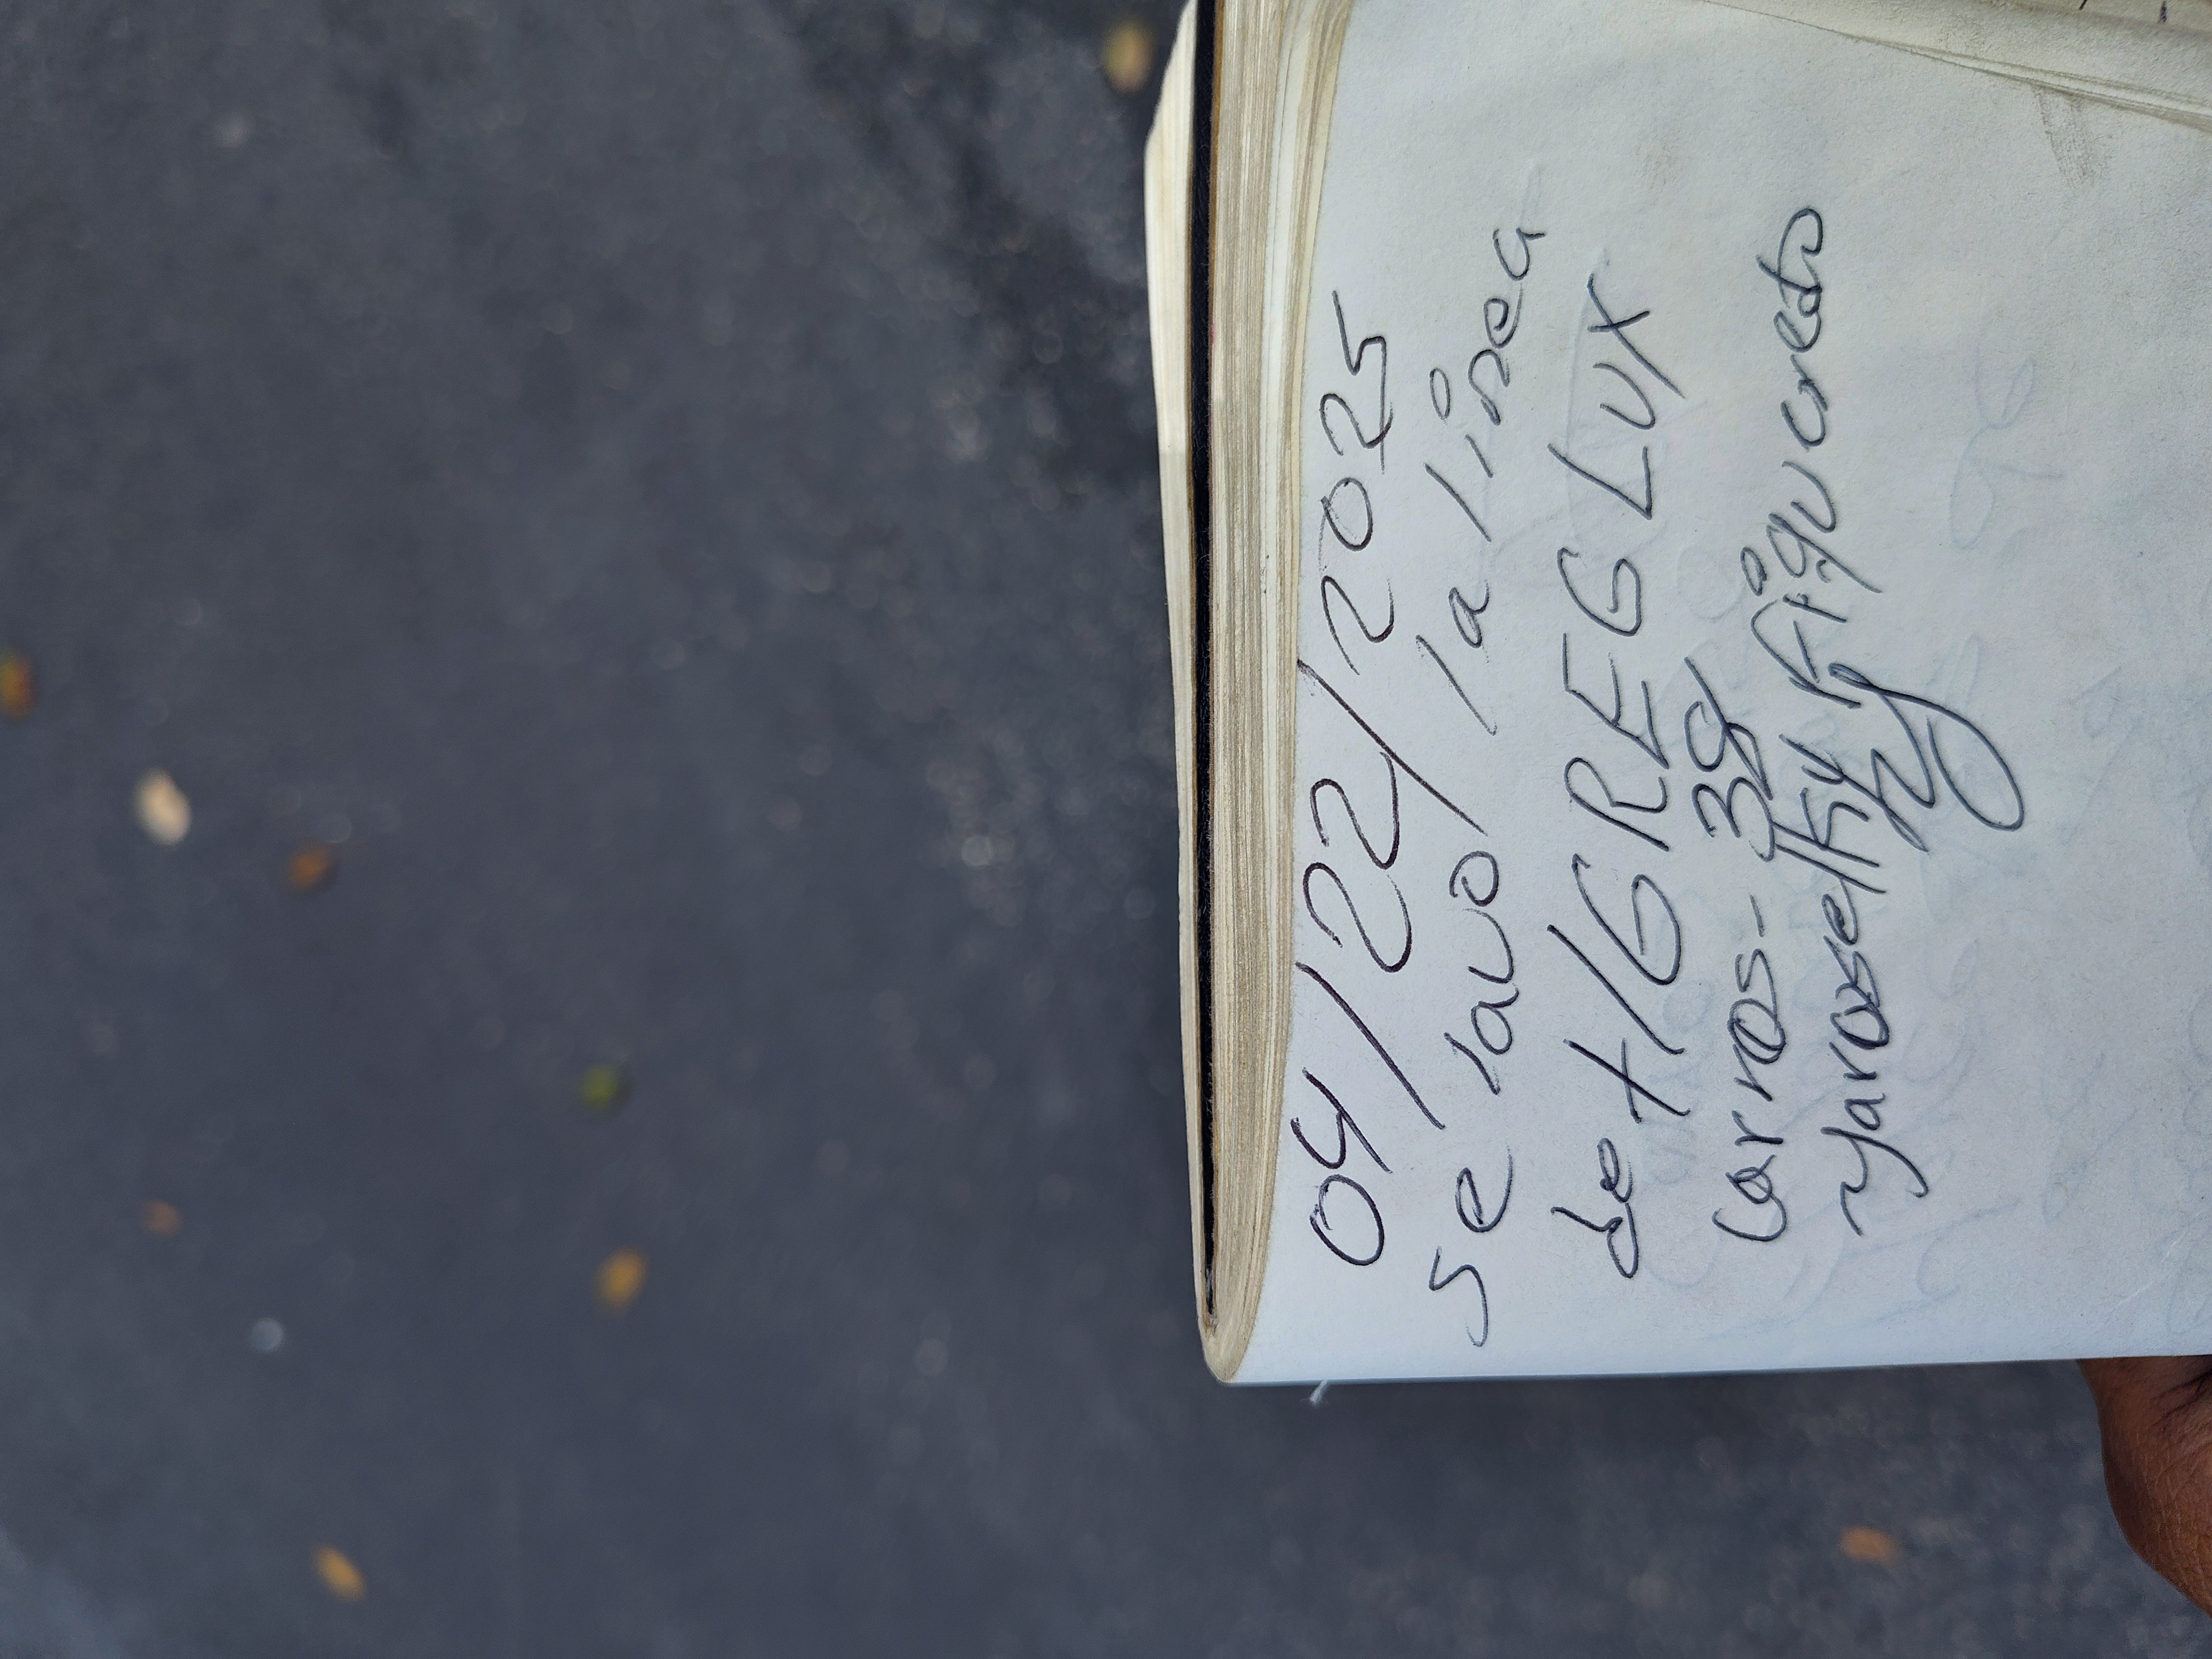 04/22/2025
se lavo la linea
de H/GREG LUX
carros - 39
yaroselky figuereto